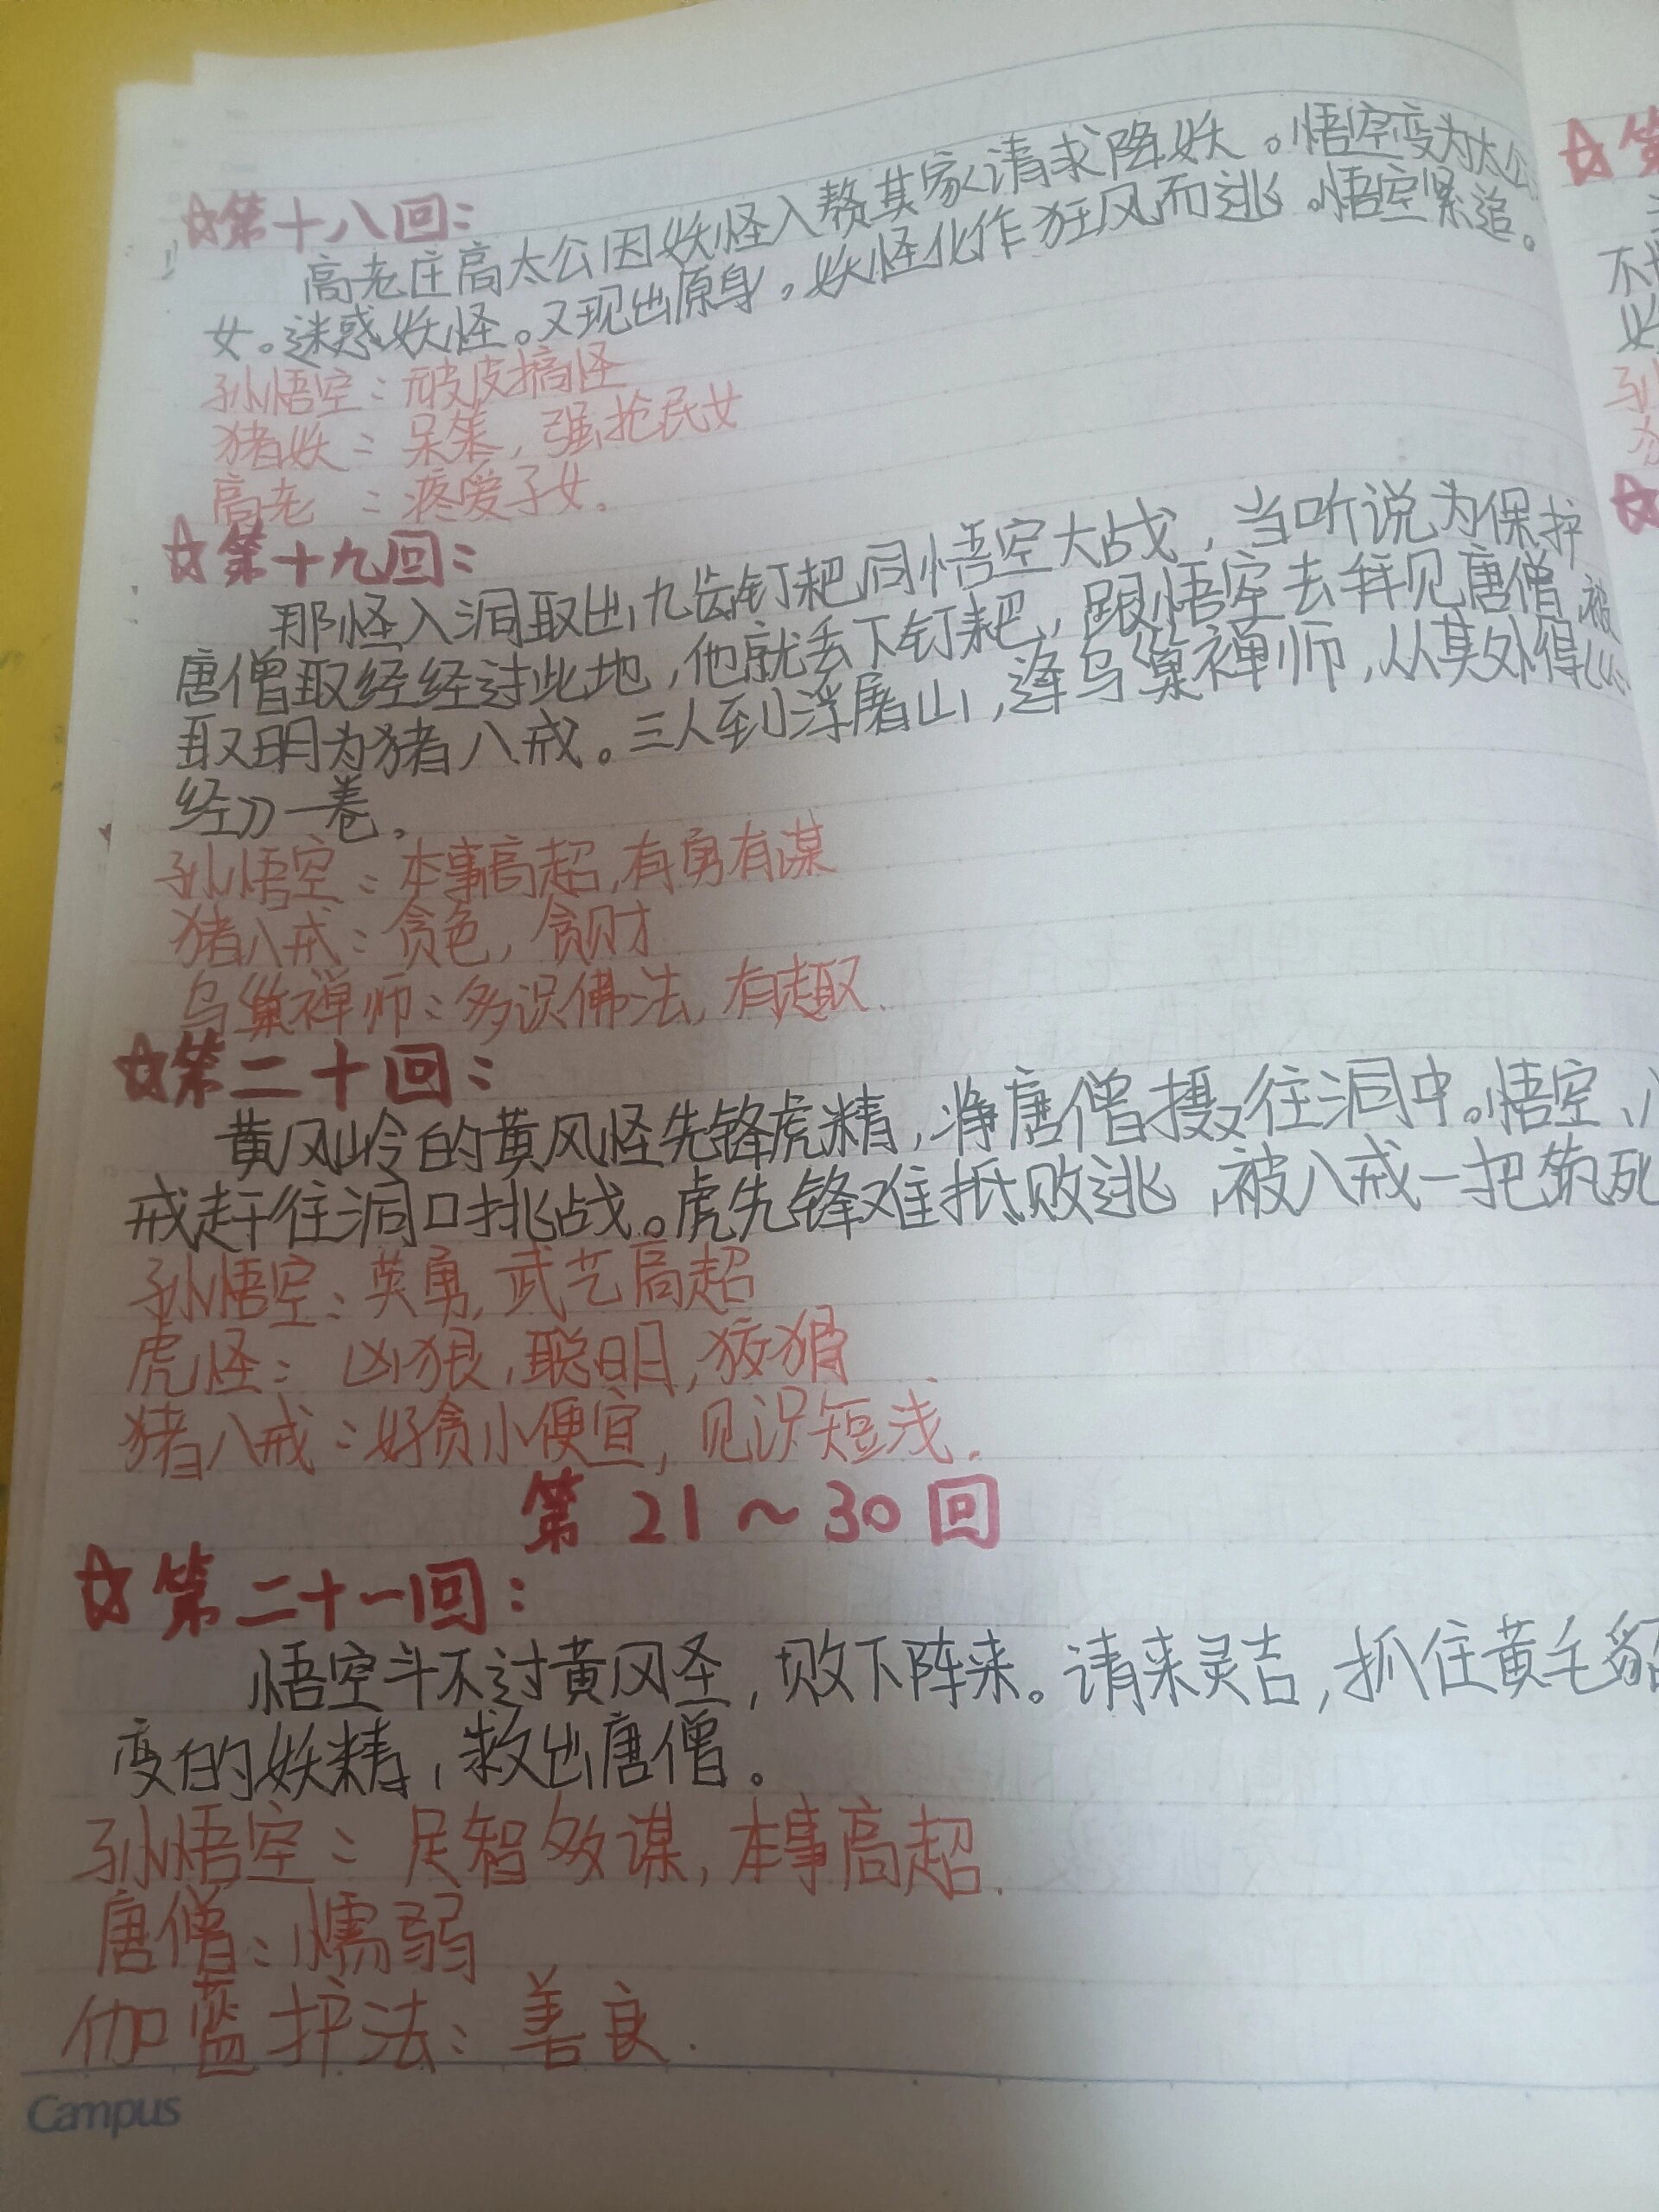 ☆第十八回:
高老庄高太公因妖怪入赘其家请求降妖。悟空变为太公
女。迷惑妖怪。又现出原身。妖怪化作狂风而逃。悟空紧追。
孙悟空:顽皮搞怪
猪妖:呆笨,强抢民女
高老:疼爱子女.
☆第十九回:
那怪入洞取出九齿钉耙同悟空大战,当听说为保护
唐僧取经经过此地,他就丢下钉耙,跟悟空去拜见唐僧,被
取明为猪八戒。三人到浮屠山,逢乌巢禅师,从其处得心
经一卷.
孙悟空:本事高超,有勇有谋
猪八戒:贪色,贪财
乌巢禅师:多识佛法,有趣.
☆第二十回:
黄风岭的黄风怪先锋虎精,将唐僧摄往洞中。悟空、八
戒赶往洞口挑战。虎先锋难抵败逃,被八戒一把筑死
孙悟空:英勇,武艺高超
虎怪:凶狠,聪明,狡猾
猪八戒:好贪小便宜,见识短浅.
第21~30回
☆第二十一回:
悟空斗不过黄风圣,败下阵来。请来灵吉,抓住黄毛貂
变的妖精,救出唐僧。
孙悟空:足智多谋,本事高超.
唐僧:懦弱
伽蓝护法:善良.
Campus
☆第
不
孙
☆